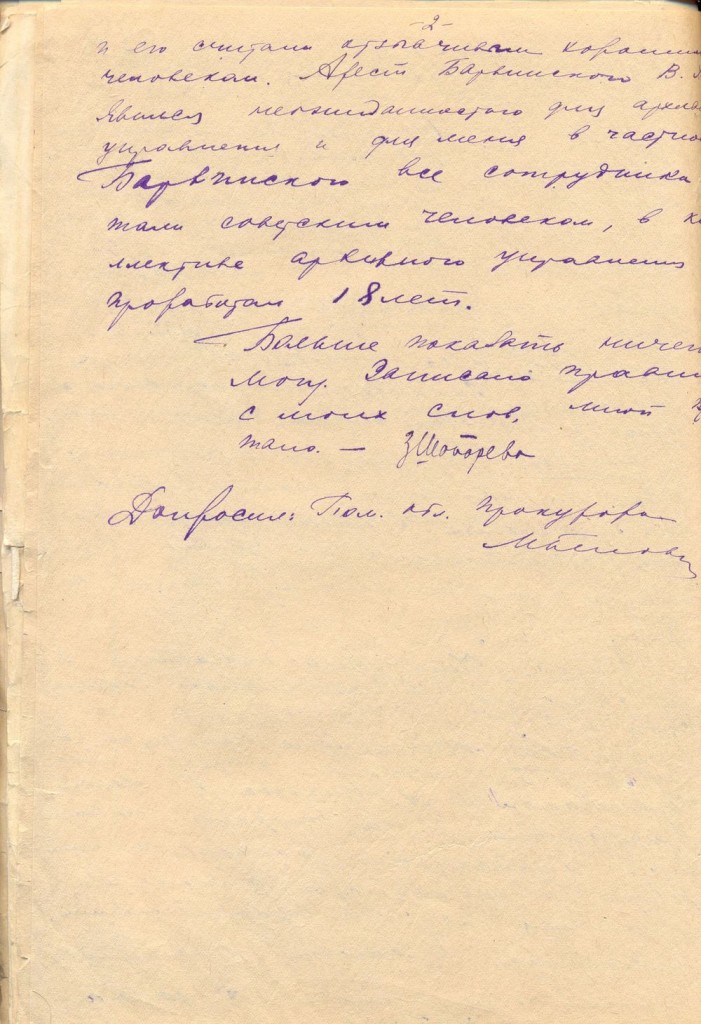 -2-
и его считали отзывчивым хороши
человеком. Арест Барвинского В.
явился неожиданностью для архив
управления и для меня в частно
Барвинского все сотрудника
тали советским человеком, в ко
ллективе архивного управления
проработал 18 лет.
Больше показать ничег
могу. Записано прави
с моих слов, мной
тано. —
Допросил: Пом. обл. прокурора